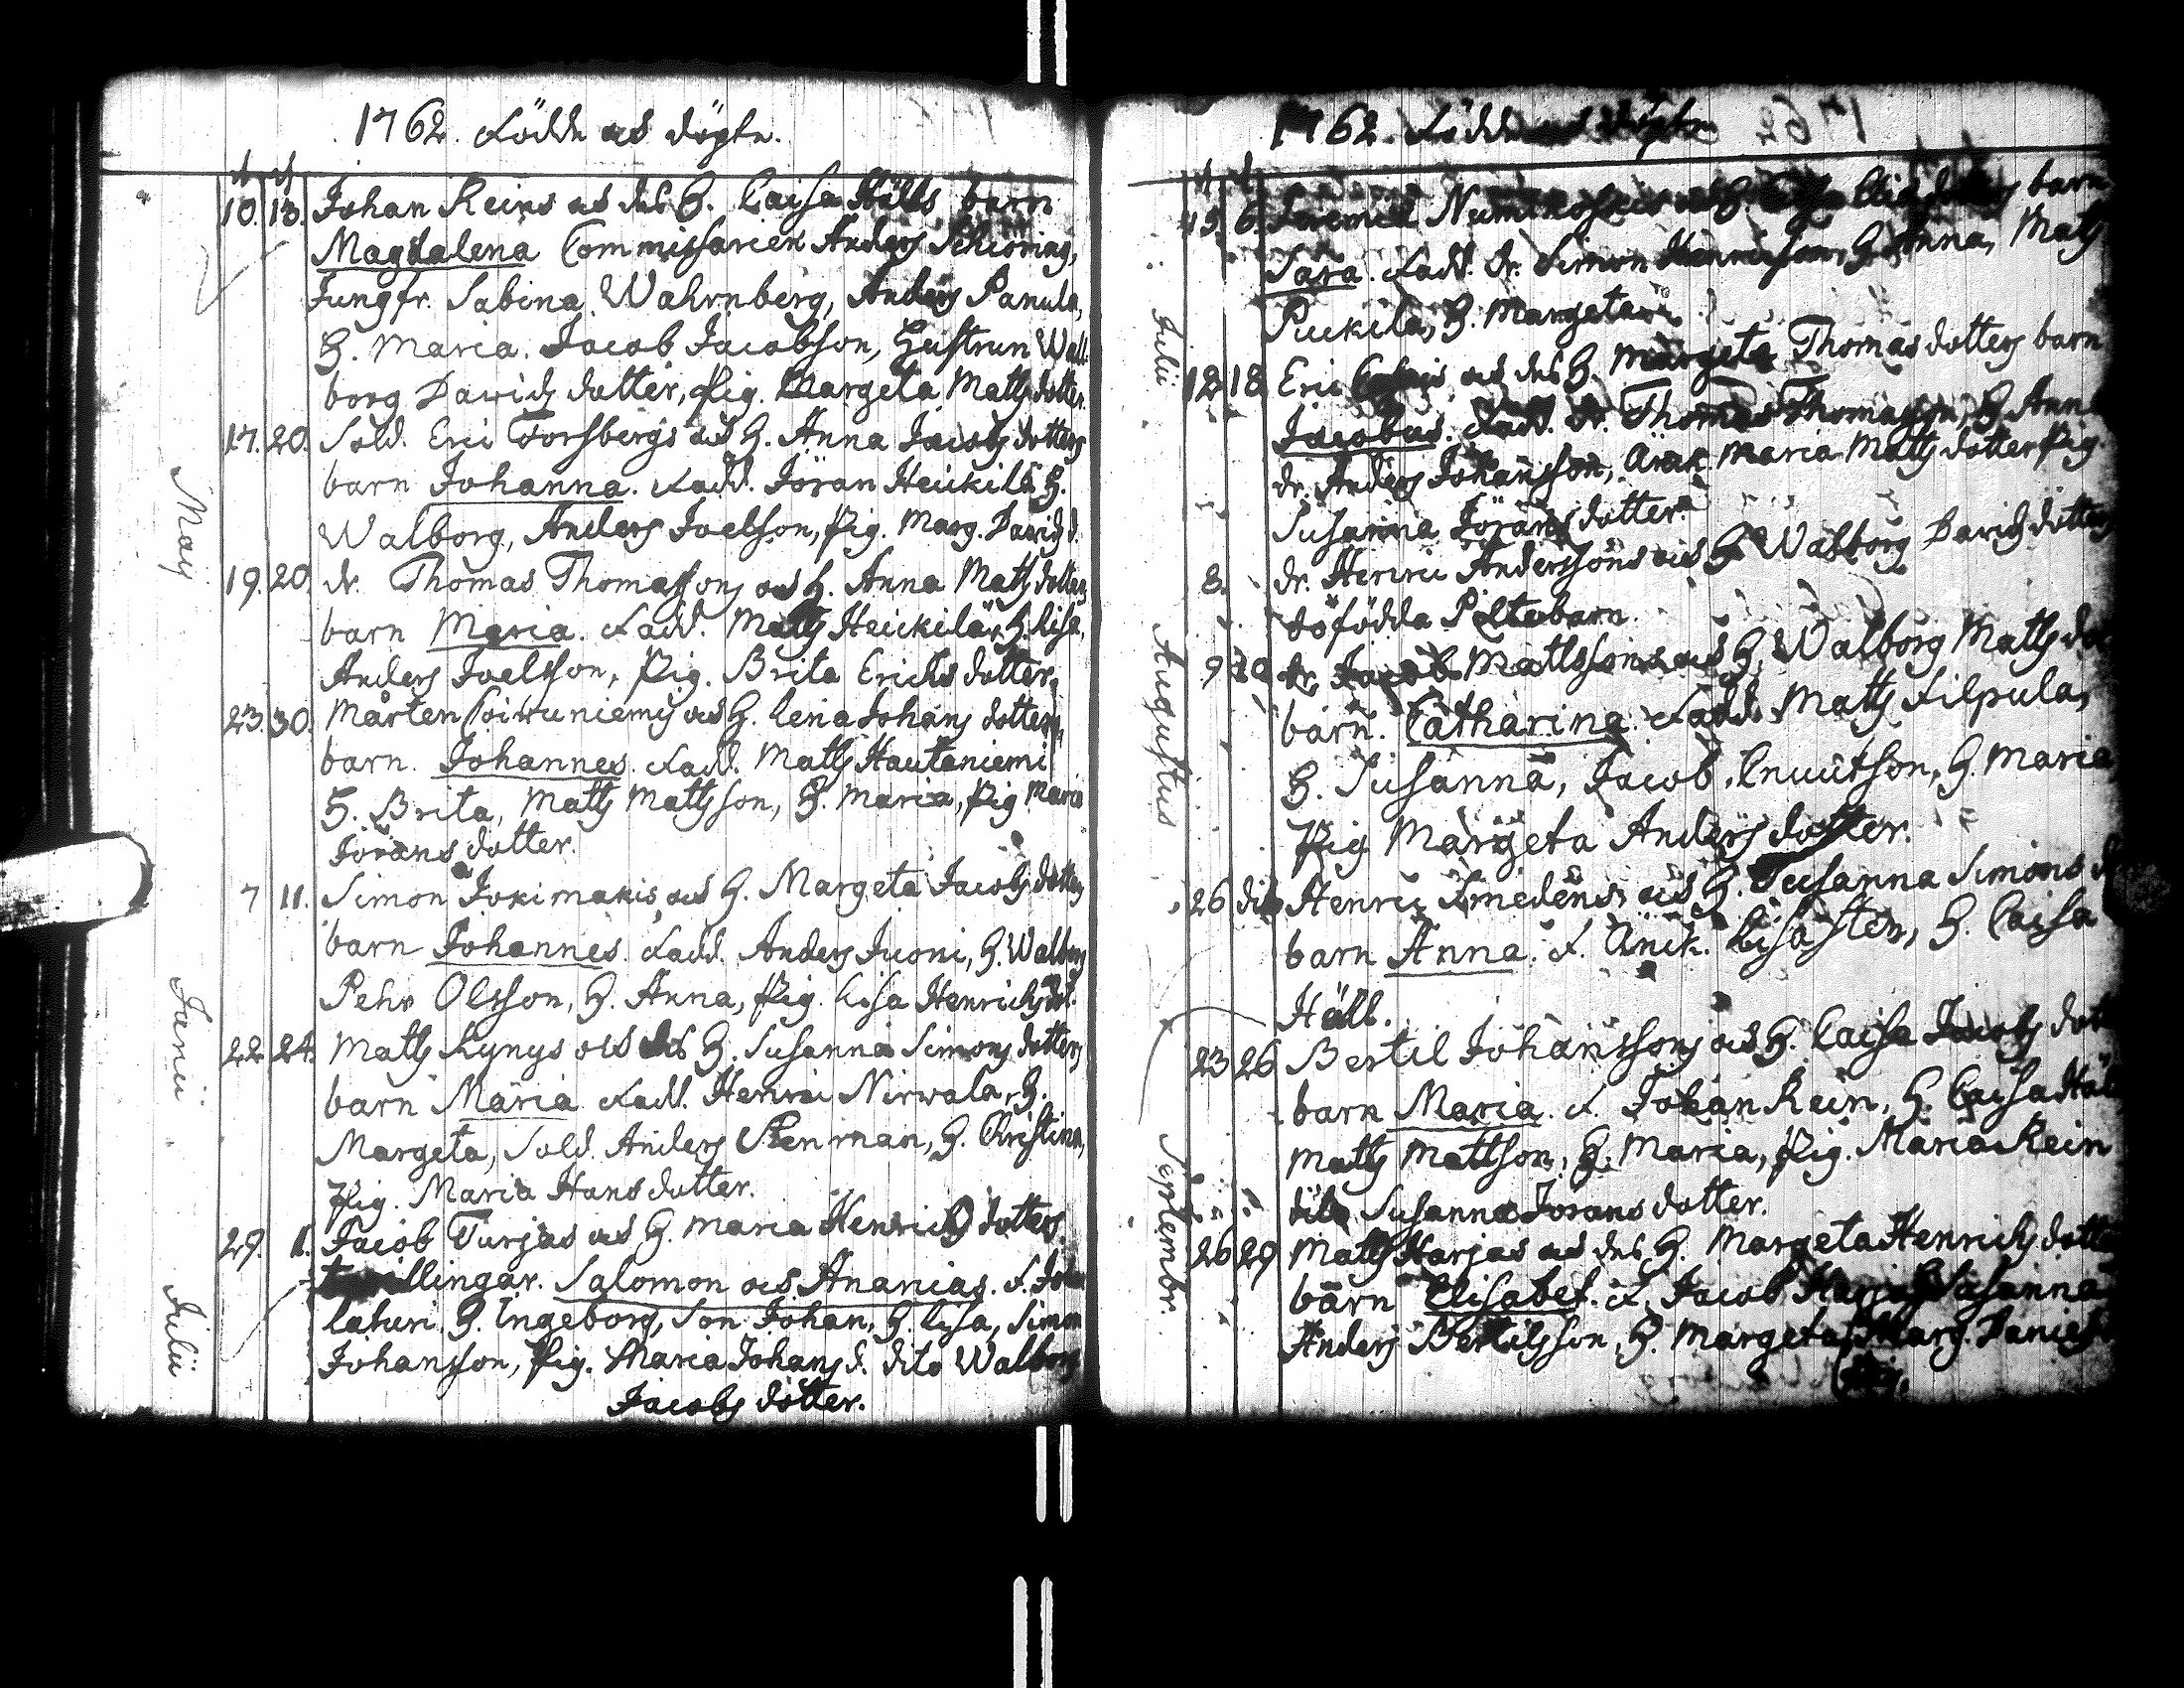 1762. Födde och döpte.
May
10. 13. Johan Reins och des H. Caisa Hälls barn
Magdalena Commissarien Anders Schiöring,
Jungfr. Sabina Wahrnberg, Anders Panula,
H. Maria. Jacob Jacobsson, Hustrun Wall
borg Davids dotter, Pig. Margeta Matts dotter.
17. 20. Sold. Eric Forsbergs och H. Anna Jacobs dotters
barn Johanna. Fadd. Jöran Heickilä H.
Walborg, Anders Joelsson, Pig. Marg. Davids d.
19. 20. dr. Thomas Thomassons och H. Anna Matts dotters
barn Maria. Fadd. Matts Heickilä, H. Lisa,
Anders Joelsson, Pig. Brita Erichs dotter,
23. 30. Mårten Coiwuniemis och H. Lena Johans dotters
barn. Johannes. Fadd. Matts Hautaniemi
H. Brita, Matts Mattsson, H. Maria, Pig Maria
Jörans dotter.
Junii
7 11. Simon Jokimakis och H. Margeta Jacobs dotters
barn Johannes. Fadd. Anders Juoni, H. Walborg
Pehr Olsson, H. Anna, Pig. Lisa Henrichs dot.
22 24. Matts Kynys och des H. Susanna Simons dotters
barn Maria Fadd. Henric Nirwala, H.
Margeta, Sold. Anders Stenman, H. Christina,
Pig. Maria Hans dotter.
Julii
29. 1. Jacob Turjas och H. Maria Henrichs dotters
twillingar. Salomon och Ananias. F. Johan
Laturi, H. Ingeborg, Son Johan, H. Lisa, Simon
Johansson, Pig. Maria Johans d. dito Walborg
Jacobs dotter.
1762. Födde och döpte
Julii
6. barn
Sara. Fadd. dr. Simon H. Anna, Matts
H. Margeta
12 18 Eric och des H. Margeta Thomas dotters barn
Jacobus. Fadd. dr. Thomas Thomasson, H. Anna
dr. Anders Johansson, Änck. Maria Matts dotter Pig.
Susanna Jörans dotter.
Augustus
8. dr. Henric Anderssons och H. Walborg Davids dotters
döfödda Piltebarn.
9 10 dr. Jacob Mattssons och H. Walborg Matts dot
barn. Catharina. Fadd. Matts Filpula,
H. Susanna, Jacob Cnuutson, H. Maria
Pig Margeta Anders dotter.
26 dito Henric Smedens och H. Susanna Simons d
barn Anna. F. Änck. Lisa Sten, H. Caisa
Häll.
Septembr.
23 26 Bertil Johanssons och H. Caisa Jacobs dot
barn Maria. F. Johan Rein, H. Caisa Häll
Matts Mattson, H. Maria, Pig. Maria Rein
dito Susanna Jörans dotter.
26 29 Matts Harjas och des H. Margeta Henrichs dotters
barn Elisabet. F. Jacob Susanna
Anders Bertilsson, H. Margeta, Marg. Daniels